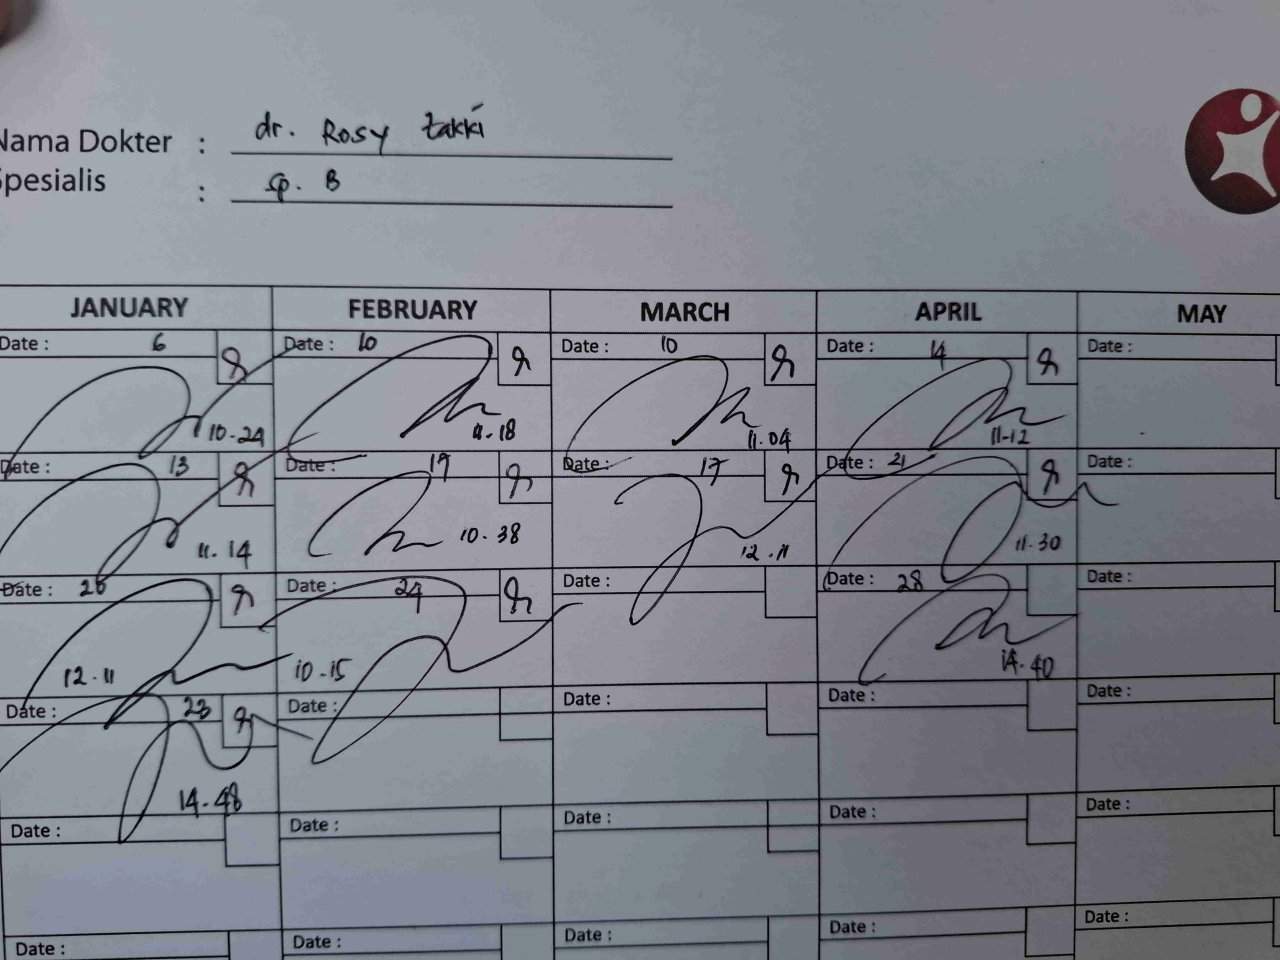 Nama Dokter : dr. Rosy Zakki
Spesialis : sp. B
JANUARY FEBRUARY MARCH APRIL MAY
Date : 6 Date : 10 Date : 10 Date : 14 Date :
10-24 11-18 11.04 11-12
Date : 13 Date : 17 Date : 21 Date :
11-14 10.38 12.11 11.30
Date : 20 Date : 24 Date : Date : 28 Date :
12.11 10-15 14.40
Date : 23 Date : Date : Date : Date :
14-48
Date : Date : Date : Date : Date :
Date : Date : Date : Date : Date :